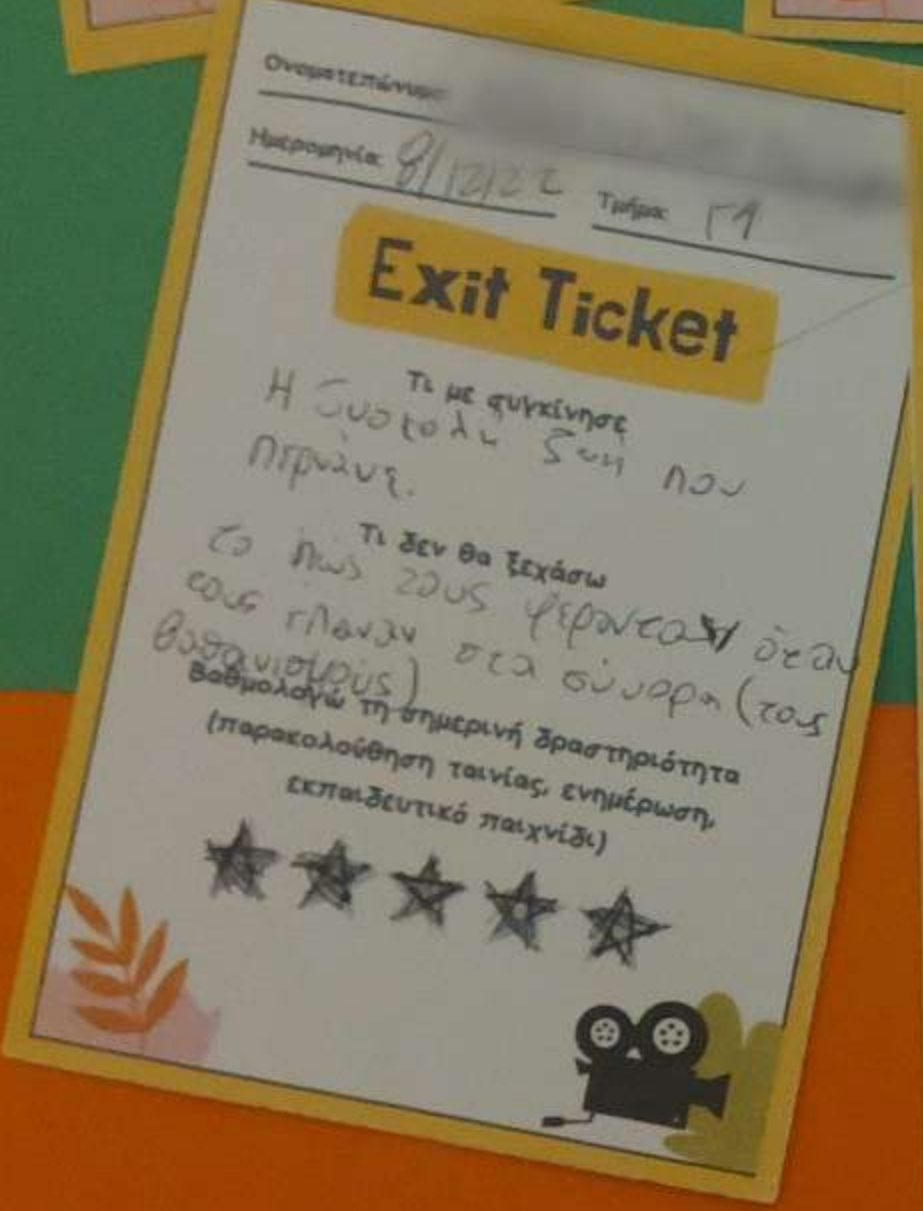 Ονοματεπώνυμο:
Ημερομηνία: 8/12/22 Τμήμα: Γ1
Exit Ticket
Τι με συγκίνησε
Η δυσκολη ζωη που
περνάνε.
Τι δεν θα ξεχάσω
το πως τους φερονται όταν
τους πιαναν στα σύνορα (τους
βασανισμούς)
Βαθμολογώ τη σημερινή δραστηριότητα
(παρακολούθηση ταινίας, ενημέρωση,
εκπαιδευτικό παιχνίδι)